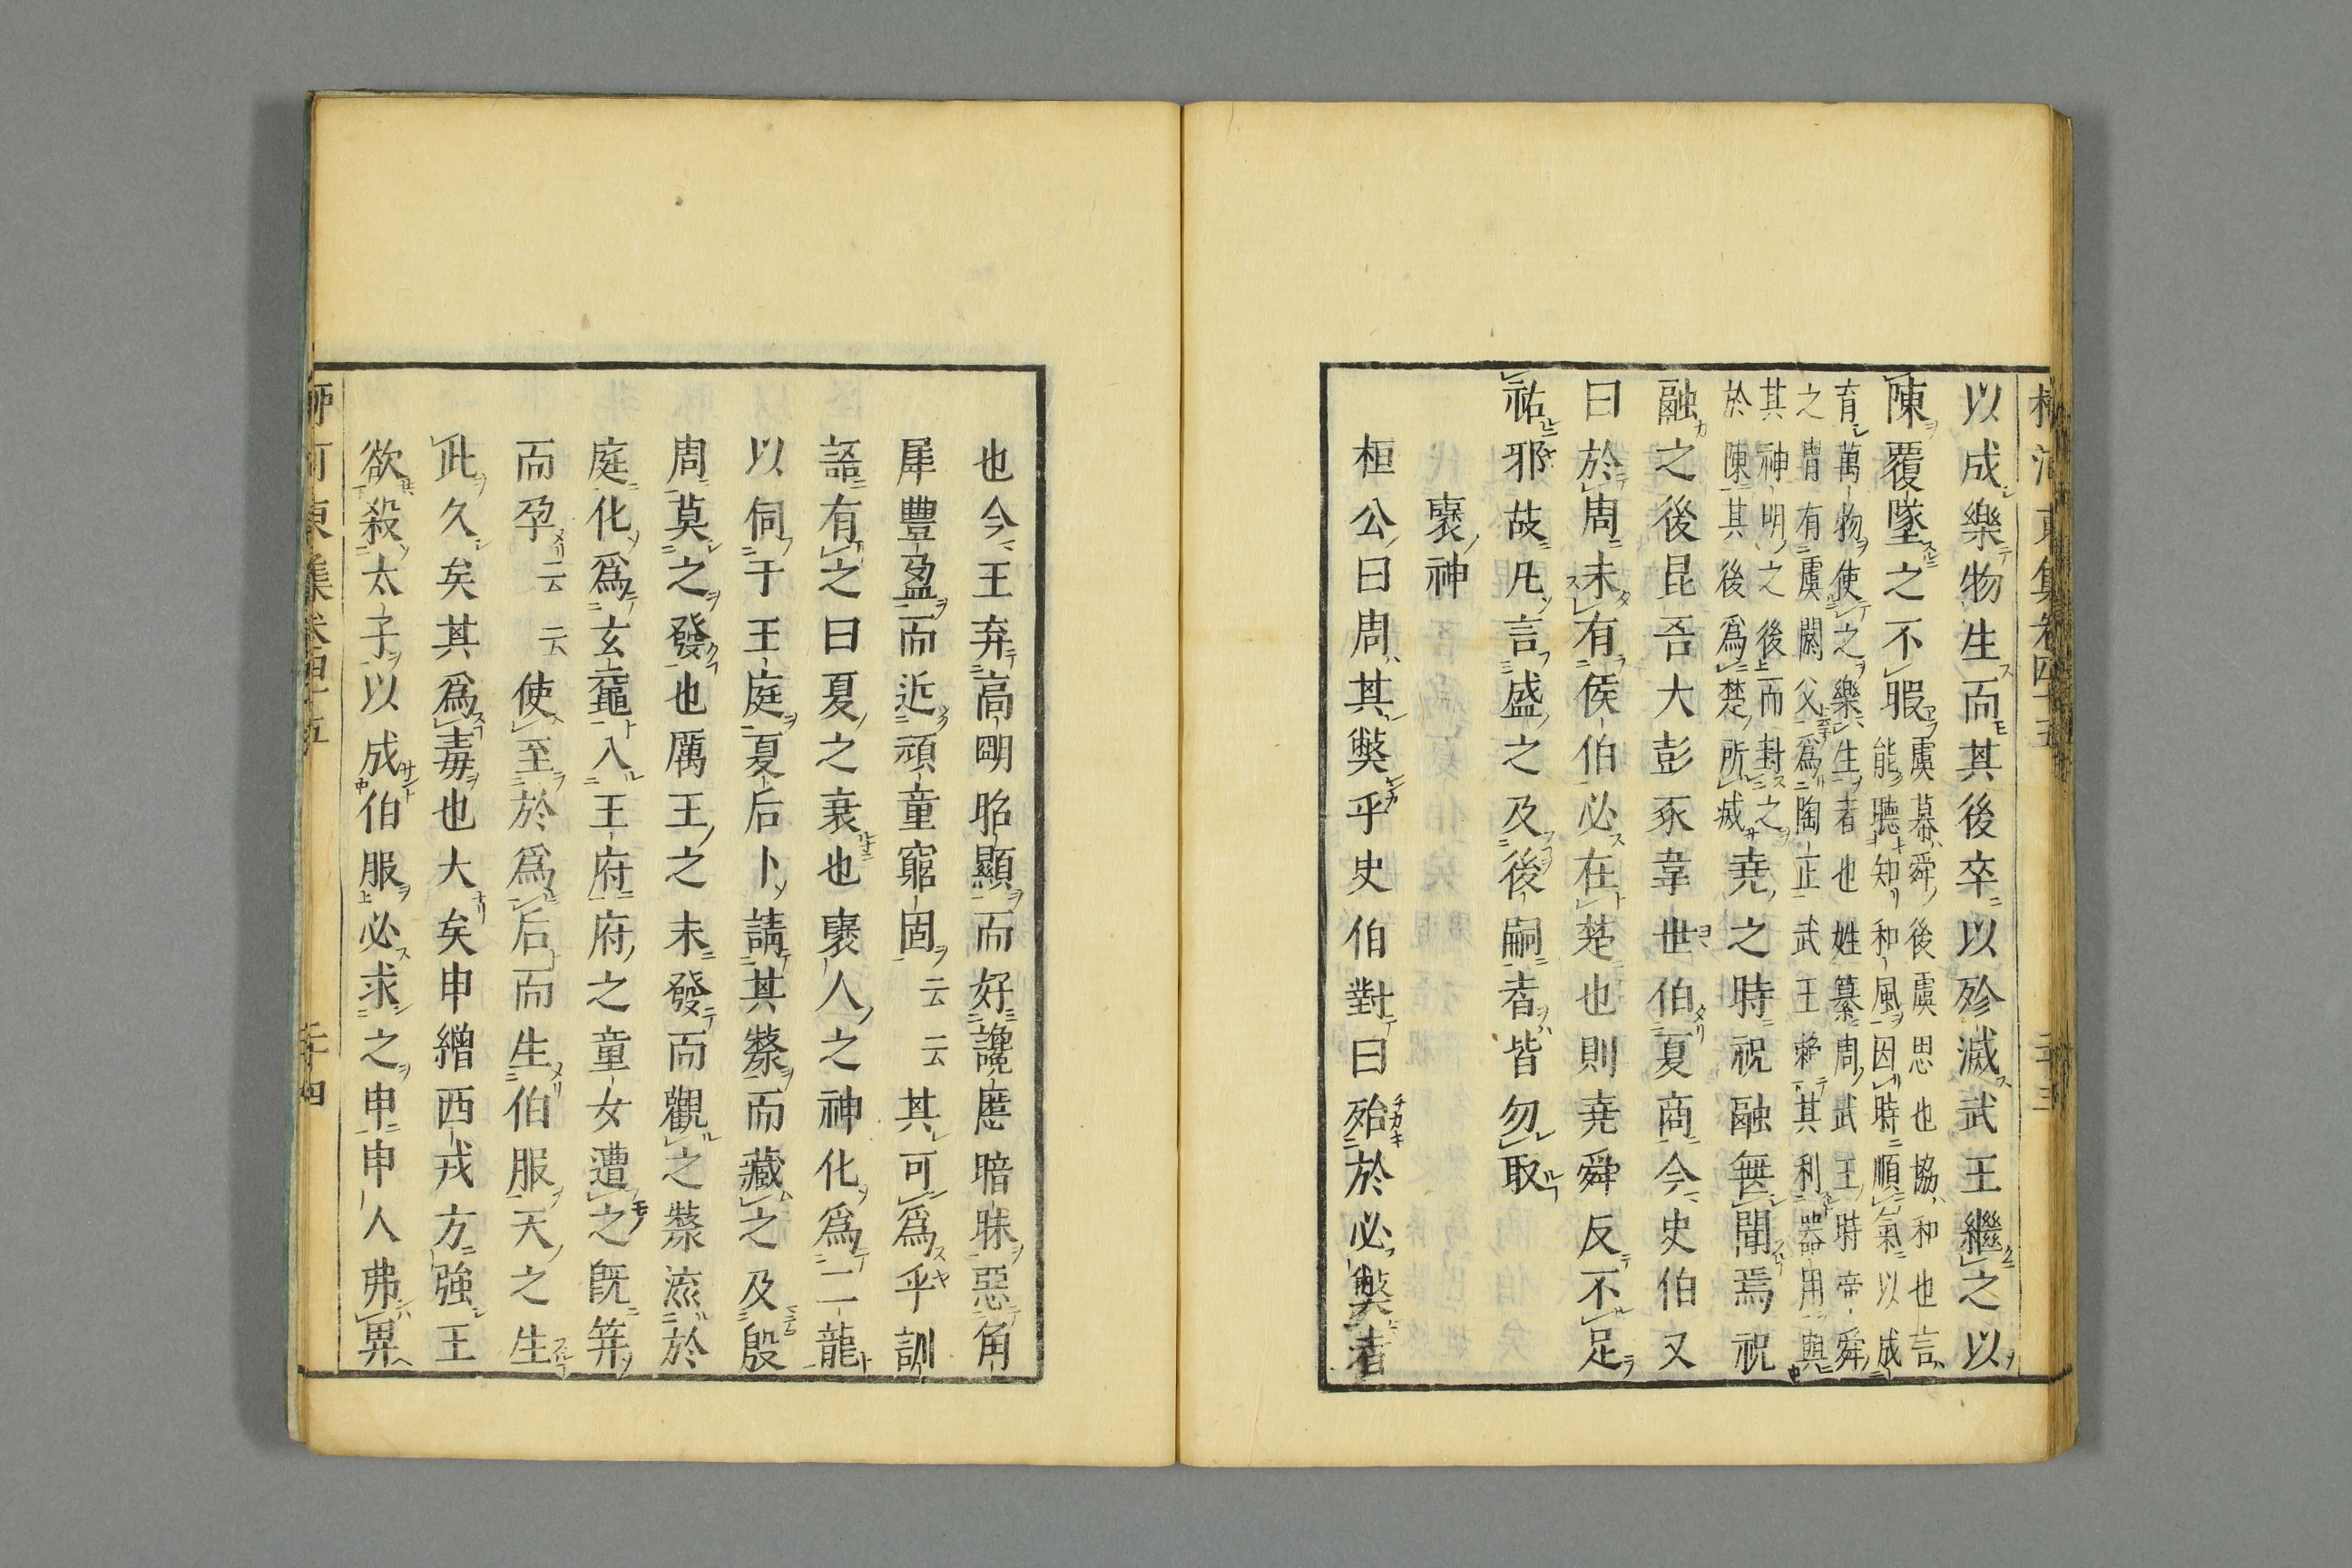 柳河東集卷四十五 二十三
以成樂物生而其後卒以殄滅武王繼之以
陳覆墜之不暇
虞幕舜後虞思也協和也言
能聽知和風因時順氣以成
育萬物使之樂生者也姓纂周武王時帝舜
之胄有虞閼父爲陶正武王賴其利器用與
其神明之後而封之
於陳其後爲楚所滅
堯之時祝融無聞焉祝
融之後昆吾大彭豕韋世伯夏商今史伯又
曰於周未有侯伯必在楚也則堯舜反不足
祐邪故凡言盛之及後嗣者皆勿取
褒神
桓公曰周其獘乎史伯對曰殆於必獘者
也今王弃高明昭顯而好讒慝暗昧惡角
犀豐盈而近頑童窮固云云其可爲乎訓
語有之曰夏之衰也褒人之神化爲二龍
以伺于王庭夏后卜請其漦而藏之及殷
周莫之發也厲王之末發而觀之漦流於
庭化爲玄黿入王府府之童女遭之既筓
而孕云云使至於爲后而生伯服天之生
此久矣其爲毒也大矣申繒西戎方強王
欲殺太子以成伯服必求之申申人弗畀
柳河東集卷四十五 二十四